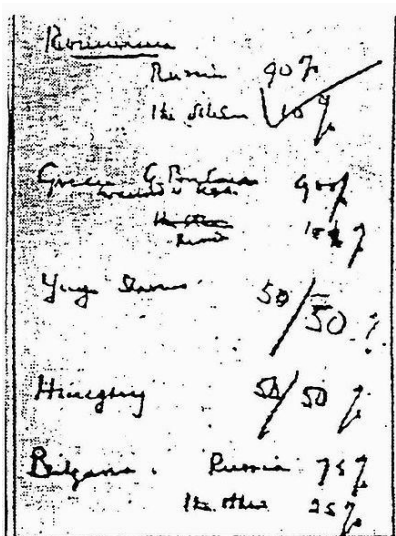 Roumania
Russia 90%
The others 10%
Greece G. Britain 90%
in accord with USA
The others
Russia 10%
Yugoslavia 50/50%
Hungary 50/50%
Bulgaria. Russia 75%
The others 25%